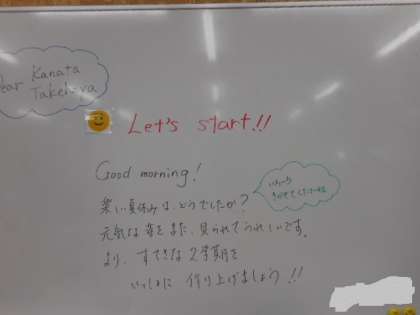 Dear Kanata
Takehava
Let's start!!
Good morning!
楽しい夏休みは、どうでしたか?
元気な姿をまた、見られてうれしいです。
より、すてきな2学期を
いっしょに 作り上げましょう!!